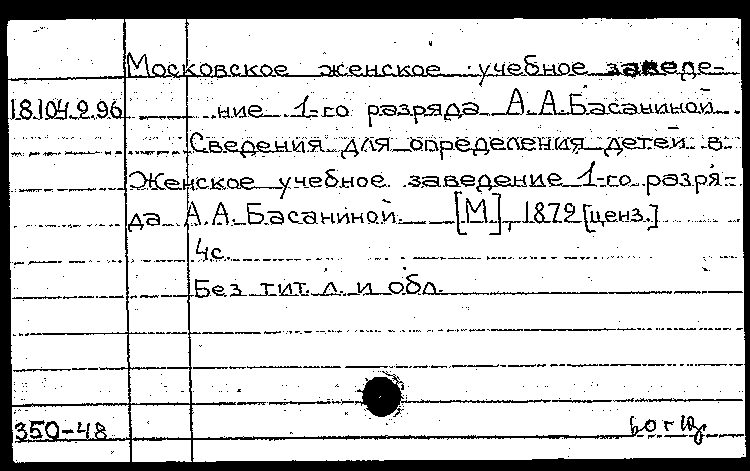 Московское женское учебное заведе-
18.104.2.96 ние 1-го разряда А.А.Басаниной
Сведения для определения детей в
Женское учебное заведение 1-го разря-
да А.А.Басаниной. [М.], 1879 [ценз.]
4с.
Без тит. л. и обл.
350-48